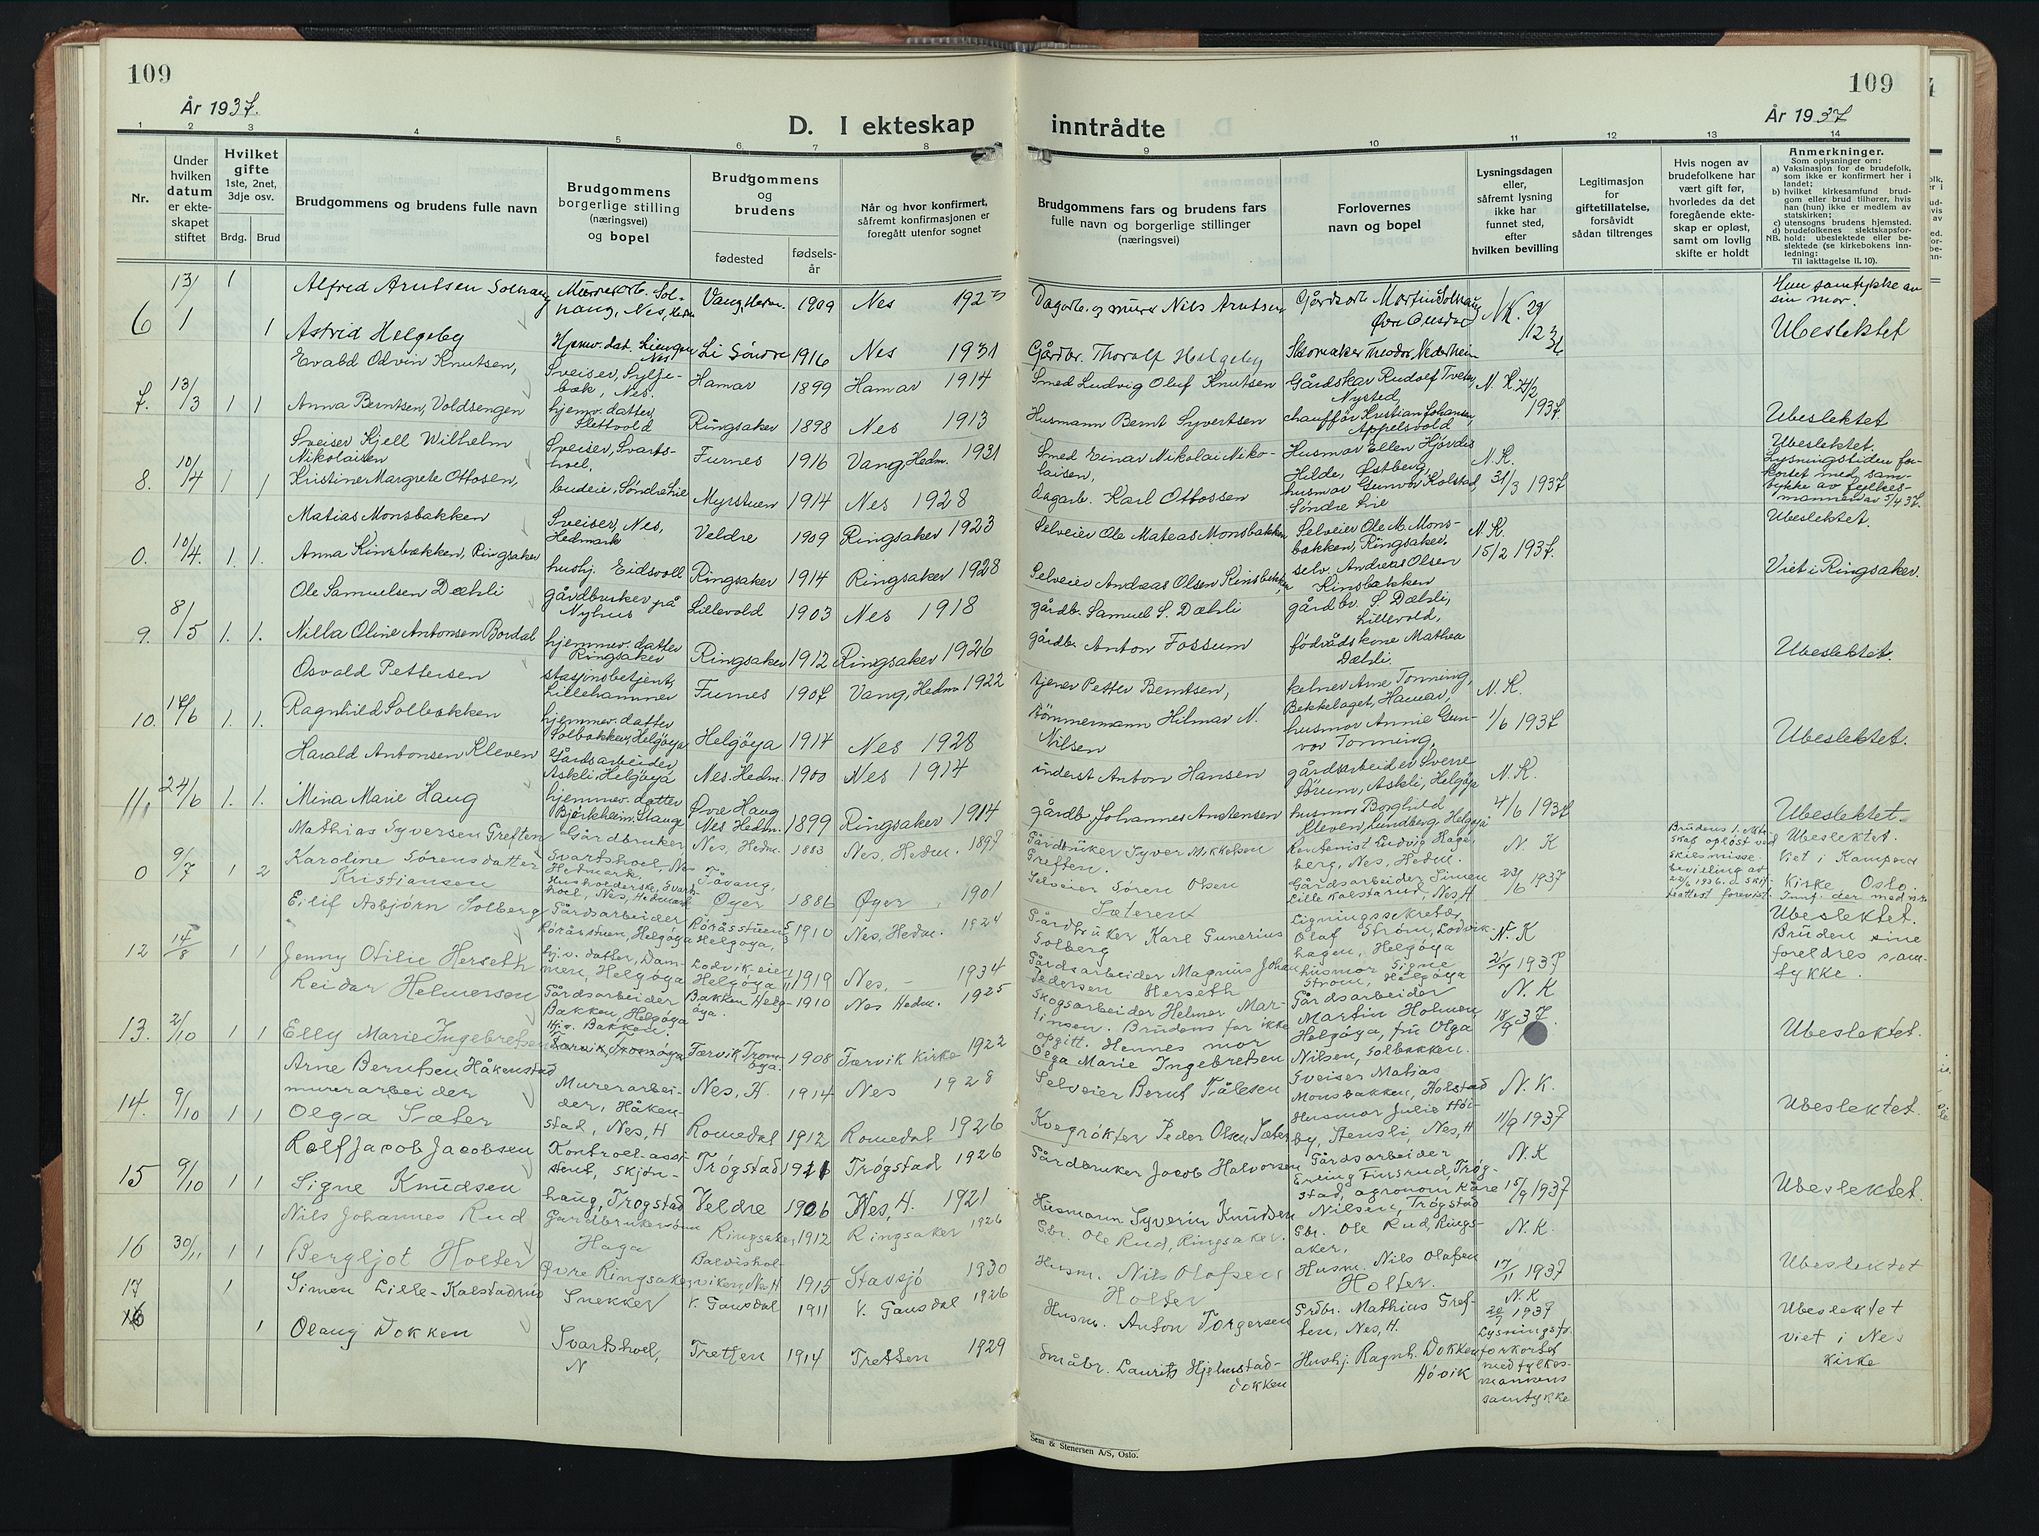 109
År 1937.
D. I ekteskap
1
2
3
4
5
6
7
8
Nr.
Under hvilken datum er ekteskapet stiftet
Hvilket gifte
1ste, 2net, 3dje osv.
Brdg.
Brud
Brudgommens og brudens fulle navn
Brudgommens borgerlige stilling (næringsvei) og bopel
Brudgommens og brudens
fødested
fødselsår
Når og hvor konfirmert, såfremt konfirmasjonen er foregått utenfor sognet
6
13/1
1
Alfred Arntsen Solhaug
Murerarb. Solhaug, Nes, Hedm.
Vang, Hedm.
1909
Nes 1923
1
Astrid Helgeby
Li Søndre
1916
Nes 1931
7.
13/3
1
1
Evald Odvin Knutsen,
Sveiser, Syljebæk, Nes.
Hamar
1899
Hamar 1914
Anna Berntsen, Voldsengen
hjemv. datter, Slettvold
Ringsaker
1898
Nes 1913
8.
10/4
1
1
Sveiser Kjell Wilhelm Nikolaisen
Sveiser, Svartshoel,
Furnes
1916
Vang Hedm. 1931
Kristine Margrete Ottosen,
budeie, Søndre Lie
Myrstuen
1914
Nes 1928
0.
10/4.
1.
1.
Matias Monsbakken
Sveiser, Nes, Hedmark
Veldre
1909
Ringsaker 1923
Anna Kinsbækken, Ringsaker
hushj. Eidsvoll
Ringsaker
1914
Ringsaker 1928
9.
8/5
1.
1.
Ole Samuelsen Dæhli
gårdbruker på Nyhus
Lillevold
1903
Nes 1918
Nilla Oline Antonsen Bordal
hjemmev. datter Ringsaker
Ringsaker
1912
Ringsaker 1926
10.
1.
1.
Osvald Pettersen
stasjonsbetjent, Lillehammer
Furnes
1907
Vang, Hedm. 1922
Ragnhild Solbakken
hjemmev. datter Solbakken, Helgøya
Helgøya
1914
Nes 1928
11,
24/6
1.
1.
Harald Antonsen Kleven
Gårdsarbeider Askli, Helgøya
Nes. Hedm.
1900
Nes 1914
Mina Marie Haug
hjemmev. datter Bjørkheim, Stange
Øvre Haug Nes Hedm.
1899
Ringsaker 1914
0
9/7
1
2
Mathias Syversen Greften
Gårdbruker Svartshoel, Nes Hedmark,
Nes, Hedm.
1883
Nes, Hedm. 1897
Karoline Sørensdatter Kristiansen
Husholderske, Svartshoel, Nes, Hedmark
Fåvang, Øyer
1886
Øyer 1901
12
14/8
1
1
Eilif Asbjørn Solberg
Gårdsarbeider Røråsstuen, Helgøya
Røråsstuen Helgøya,
1910
Nes, Hedm. 1924
Jenny Otilie Herseth
hj.v. datter, Dammen, Helgøya
Lodvikeie Helgøya
1919
Nes, - 1934
13.
2/10
1
1
Reidar Helmersen
Gårdsarbeider Bakken, Helgøya
Bakken Helgøya.
1910
Nes Hedm. 1925
Elly Marie Ingebretsen
Hjv. Bakken. Færvik, Tromøya
Færvik Tromøya.
1908
Færvik kirke 1922
14.
9/10
1
1
Arne Berntsen Håkenstad murerarbeider
Murerarbeider, Håkenstad, Nes, H
Nes, H.
1914
Nes 1928
Olga Sæter
Romedal
1912
Romedal 1926
15
9/10
1
1
Rolf Jacob Jacobsen
Kontrollassistent, Skjønhaug, Trøgstad
Trøgstad
1911
Trøgstad 1926
Signe Knudsen
Veldre
1906
Nes, H. 1921
16
30/11
1
1
Nils Johannes Rud
Gårdbrukersønn Haga
Ringsaker
1912
Ringsaker 1926
Bergljot Holter
Øvre Ringsaker
1915
Stavsjø 1930
17
1
Simen Lille-Kalstadrud
Snekker
V. Gausdal
1911
V. Gausdal 1926
1
Olaug Dokken
Svartshoel, N
Tretten
1914
Tretten 1929
109
År 1937
inntrådte
9
10
11
12
13
14
Brudgommens fars og brudens fars fulle navn og borgerlige stillinger (næringsvei)
Forlovernes navn og bopel
Lysningsdagen eller, såfremt lysning ikke har funnet sted, efter hvilken bevilling
Legitimasjon for giftetillatelse, forsåvidt sådan tiltrenges
Hvis nogen av brudefolkene har vært gift før, hvorledes da det foregående ekteskap er opløst, samt om lovlig skifte er holdt
Anmerkninger.
Som oplysninger om:
a) Vaksinasjon for de brudefolk, som ikke er konfirmert her i landet;
b) hvilket kirkesamfund brudgom eller brud tilhører, hvis han (hun) ikke er medlem av statskirken;
c) utensogns brudens hjemsted.
d) brudefolkenes slektskapsforhold: ubeslektede eller beslektede (se kirkebokens innledning:
NB.
Til iakttagelse II. 10).
Dagarb. og murer Nils Arntsen
Gårdsarb. Martin Solhaug
Hun samtykke av sin mor.
Gårdbr. Thoralf Helgeby
Skomaker Theodor Nederheim
Ubeslektet
Smed Ludvig Oluf Knutsen
Gårdskar Rudolf Tveter, Nysted,
N. K.
1937.
Husmann Bernt Syvertsen
chauffør Kristian Johansen, Appelsvold
Ubeslektet
Smed Einar Nikolai Nikolaisen,
Husmor Ellen Hjørdis Hilde, Østberg,
N. K.
31/3 1937
Ubeslektet.
Lysningstiden forkortet med samtykke av fylkesmannen av 5/4 37.
dagarb. Karl Ottossen
husmor Gunvor Kolstad, Søndre Lie
Selveier Ole Mateas Monsbakken
Selveier Ole M. Monsbakken, Ringsaker.
N. K.
15/2 1937.
Ubeslektet.
Selveier Andreas Olsen Kinsbekken
selv. Andreas Olsen Kinsbækken
Viet i Ringsaker.
gårdb. Samuel S. Dæhli
gårdbr. S. Dæhli, Lillevold,
gårdbr Anton Fossum
fødrådskone Mathea Dæhli.
Ubeslektet.
tjener Petter Berntsen,
kelner Arne Tonning, Bekkelaget, Hamar,
N. K.
1/6 1937
tømmermann Hilmar N. Nilsen
husmor Annie Gunvor Tonning,
Ubeslektet.
inderst Anton Hansen
gårdsarbeider Sverre Sørum, Askli, Helgøya
N. K.
4/6 1937
gårdb. Johannes Andersen
husmor Borghild Kleven, Lundberg, Helgøya
Ubeslektet.
Gårdbruker Syver Mikkelsen Greften.
Rentenist Ludvig Hageberg, Nes, Hedm.
N. K
23/6 1937
Brudens 1. ektskap opløst ved skilsmisse. bevilling av 22/6 1936. Skifteattest forevist.
Ubeslektet.
Viet i Kampen Kirke Oslo.
Selveier Søren Olsen Sæteren
Gårdsarbeider Simen Lille Kalstarud, Nes, H
Gårdbruker Karl Gunerius Solberg
Ligningssekretær Olaf Strøm, Lodvikhagen, Helgøya
N. K
1937
Ubeslektet.
Bruden sine foreldres samtykke.
Gårdsarbeider Magnus Johan Pedersen Herseth
husmor Signe Strøm, Helgøya
Skogsarbeider Helmer Martinsen. Brudens far ikke opgitt. Hennes mor Olga Marie Ingebretsen
Gårdsarbeider Martin Holmen Helgøya, fru Olga Nilsen, Solbakken.
N. K
18/9 37.
Ubeslektet.
Selveier Bernt Pålesen
Sveiser Matias Monsbakken, Holstad
N. K.
11/9 1937
Kvegrøkter Peder Olsen, Sæter
Husmor Julie Høiby, Stensli, Nes, H
Ubeslektet.
Gårdbruker Jacob Halvorsen
Gårdsarbeider Erling Fursrud, Trøgstad, agronom Kåre Nilsen, Trøgstad
N. K
15/9 1937
Husmann Syverin Knudsen
Ubeslektet.
Gbr. Ole Rud, Ringsaker.
Gbr. Ole Rud, Ringsaker.
N. K.
17/11 1937
Husm. Nils Olafsen Holter
Husm. Nils Olafsen Holter.
Ubeslektet
Husm. Anton Torgersen
Grdbr. Mathias Greften, Nes, H.
N. K
1937
Lysningst. forkortet med fylkesmannens samtykke
Ubeslektet
viet i Nes Kirke
Småbr. Laurits Hjelmstad-dokken
Hushj. Ragnh. Dokken Høvik
Sem & Stenersen A/S, Oslo.